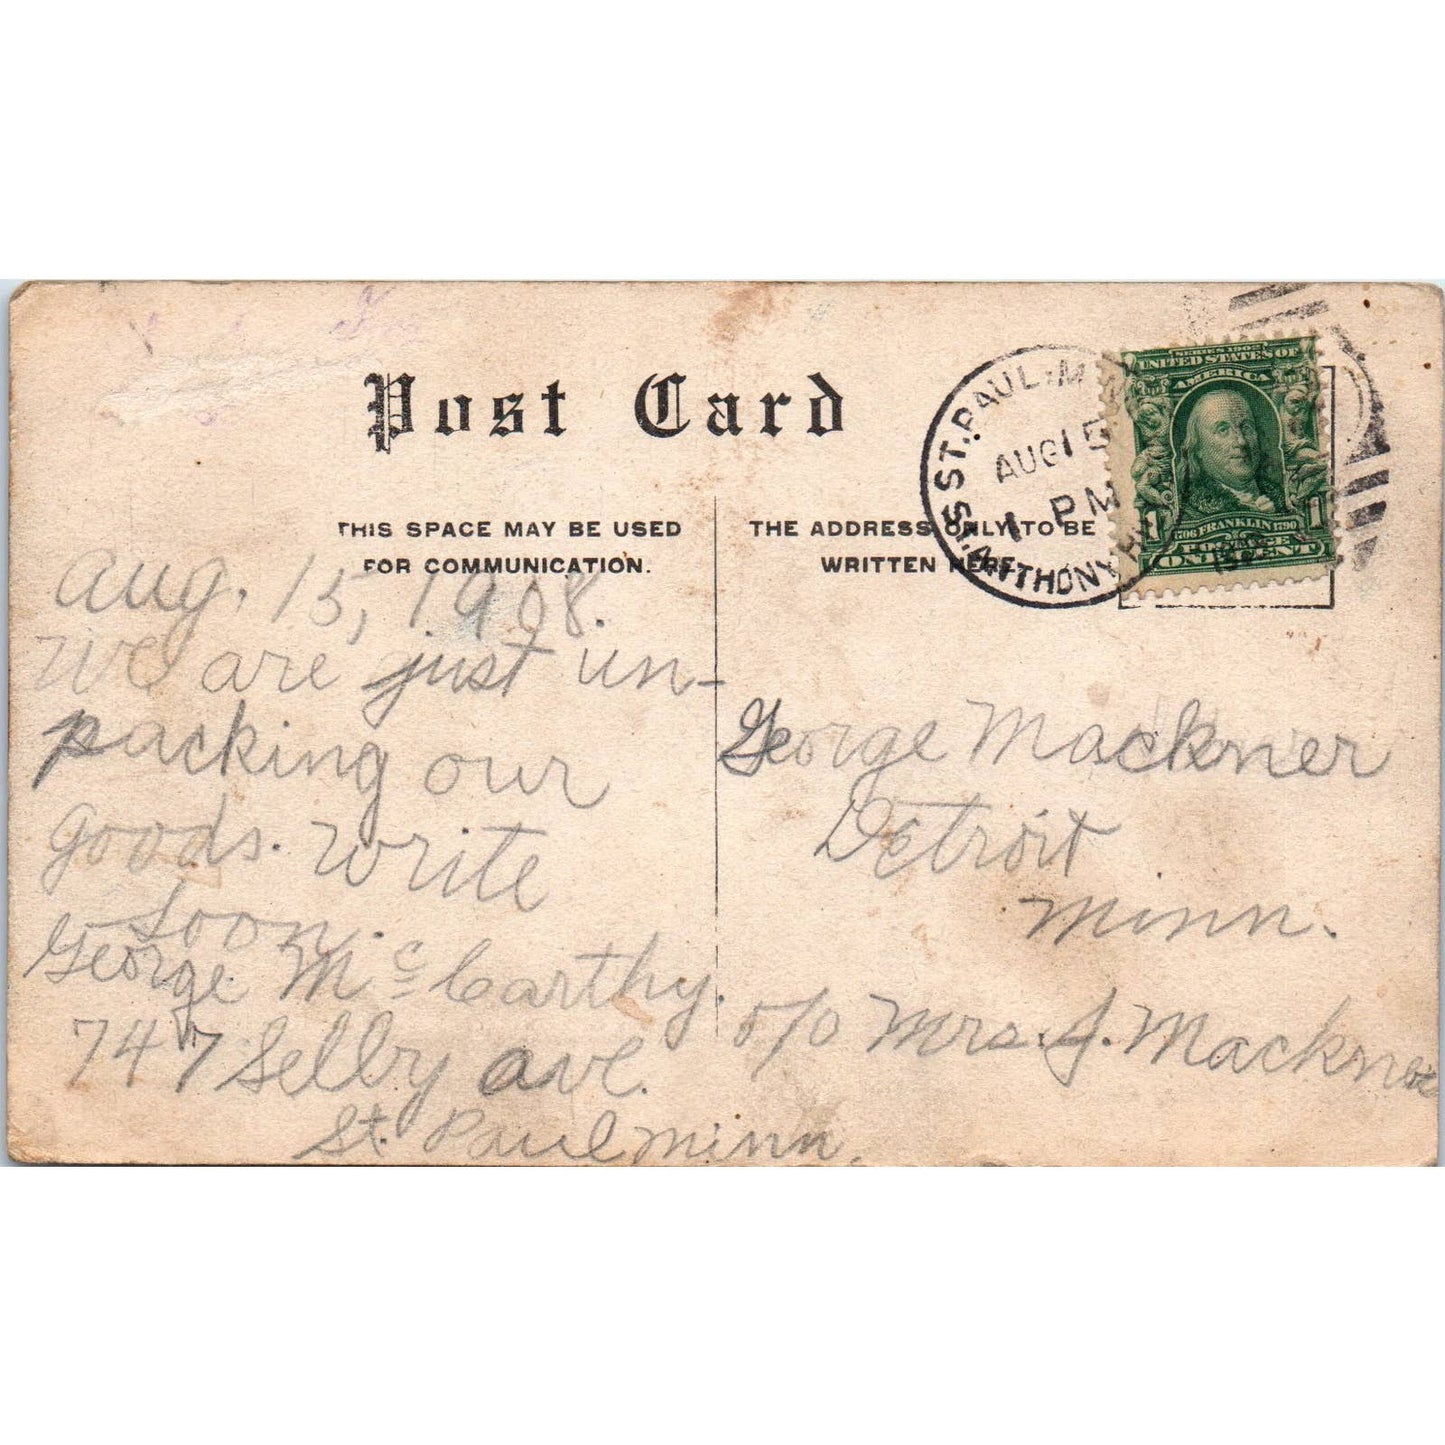 Post Card
THIS SPACE MAY BE USED
FOR COMMUNICATION.
THE ADDRESS ONLY TO BE
WRITTEN HERE
ST. PAUL. M
AUG 15
1 PM
ST. ANTHONY
1908
SERIES 1902
UNITED STATES OF
AMERICA
1706 FRANKLIN 1790
1 1
POSTAGE
ONE CENT
Aug. 15, 1908.
We are just un-
packing our
goods. Write
Soon.
George Mc Carthy.
747 Selby Ave.
St. Paul Minn.
George Mackner
Detroit
Minn.
c/o Mrs. J. Mackner